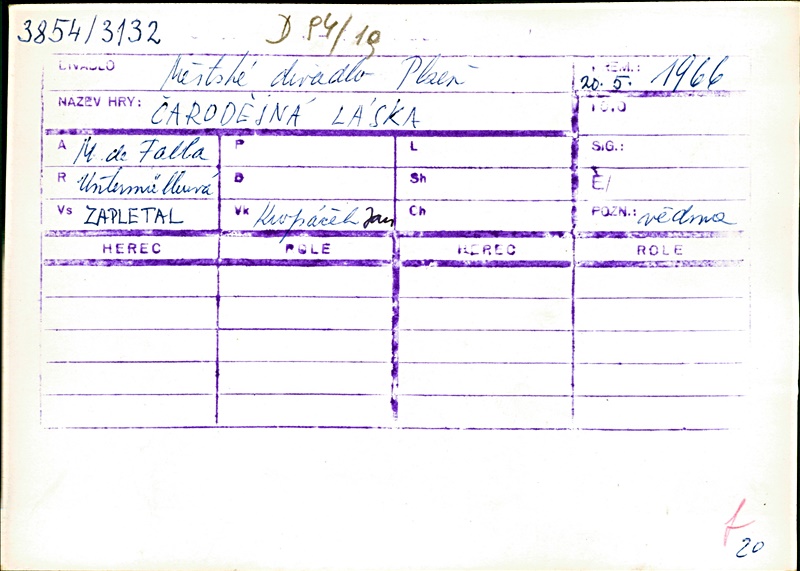 3854/3132 D 84/19
DIVADLO Městské divadlo Plzeň PREM.: 20. 5. 1966
NÁZEV HRY: ČARODĚJNÁ LÁSKA
A M. de Falla P L SIG.:
R Untermüllerová B Sh Č/
Vs ZAPLETAL Vk Kropáček Jan Ch POZN.: vědma
HEREC ROLE HEREC ROLE
20